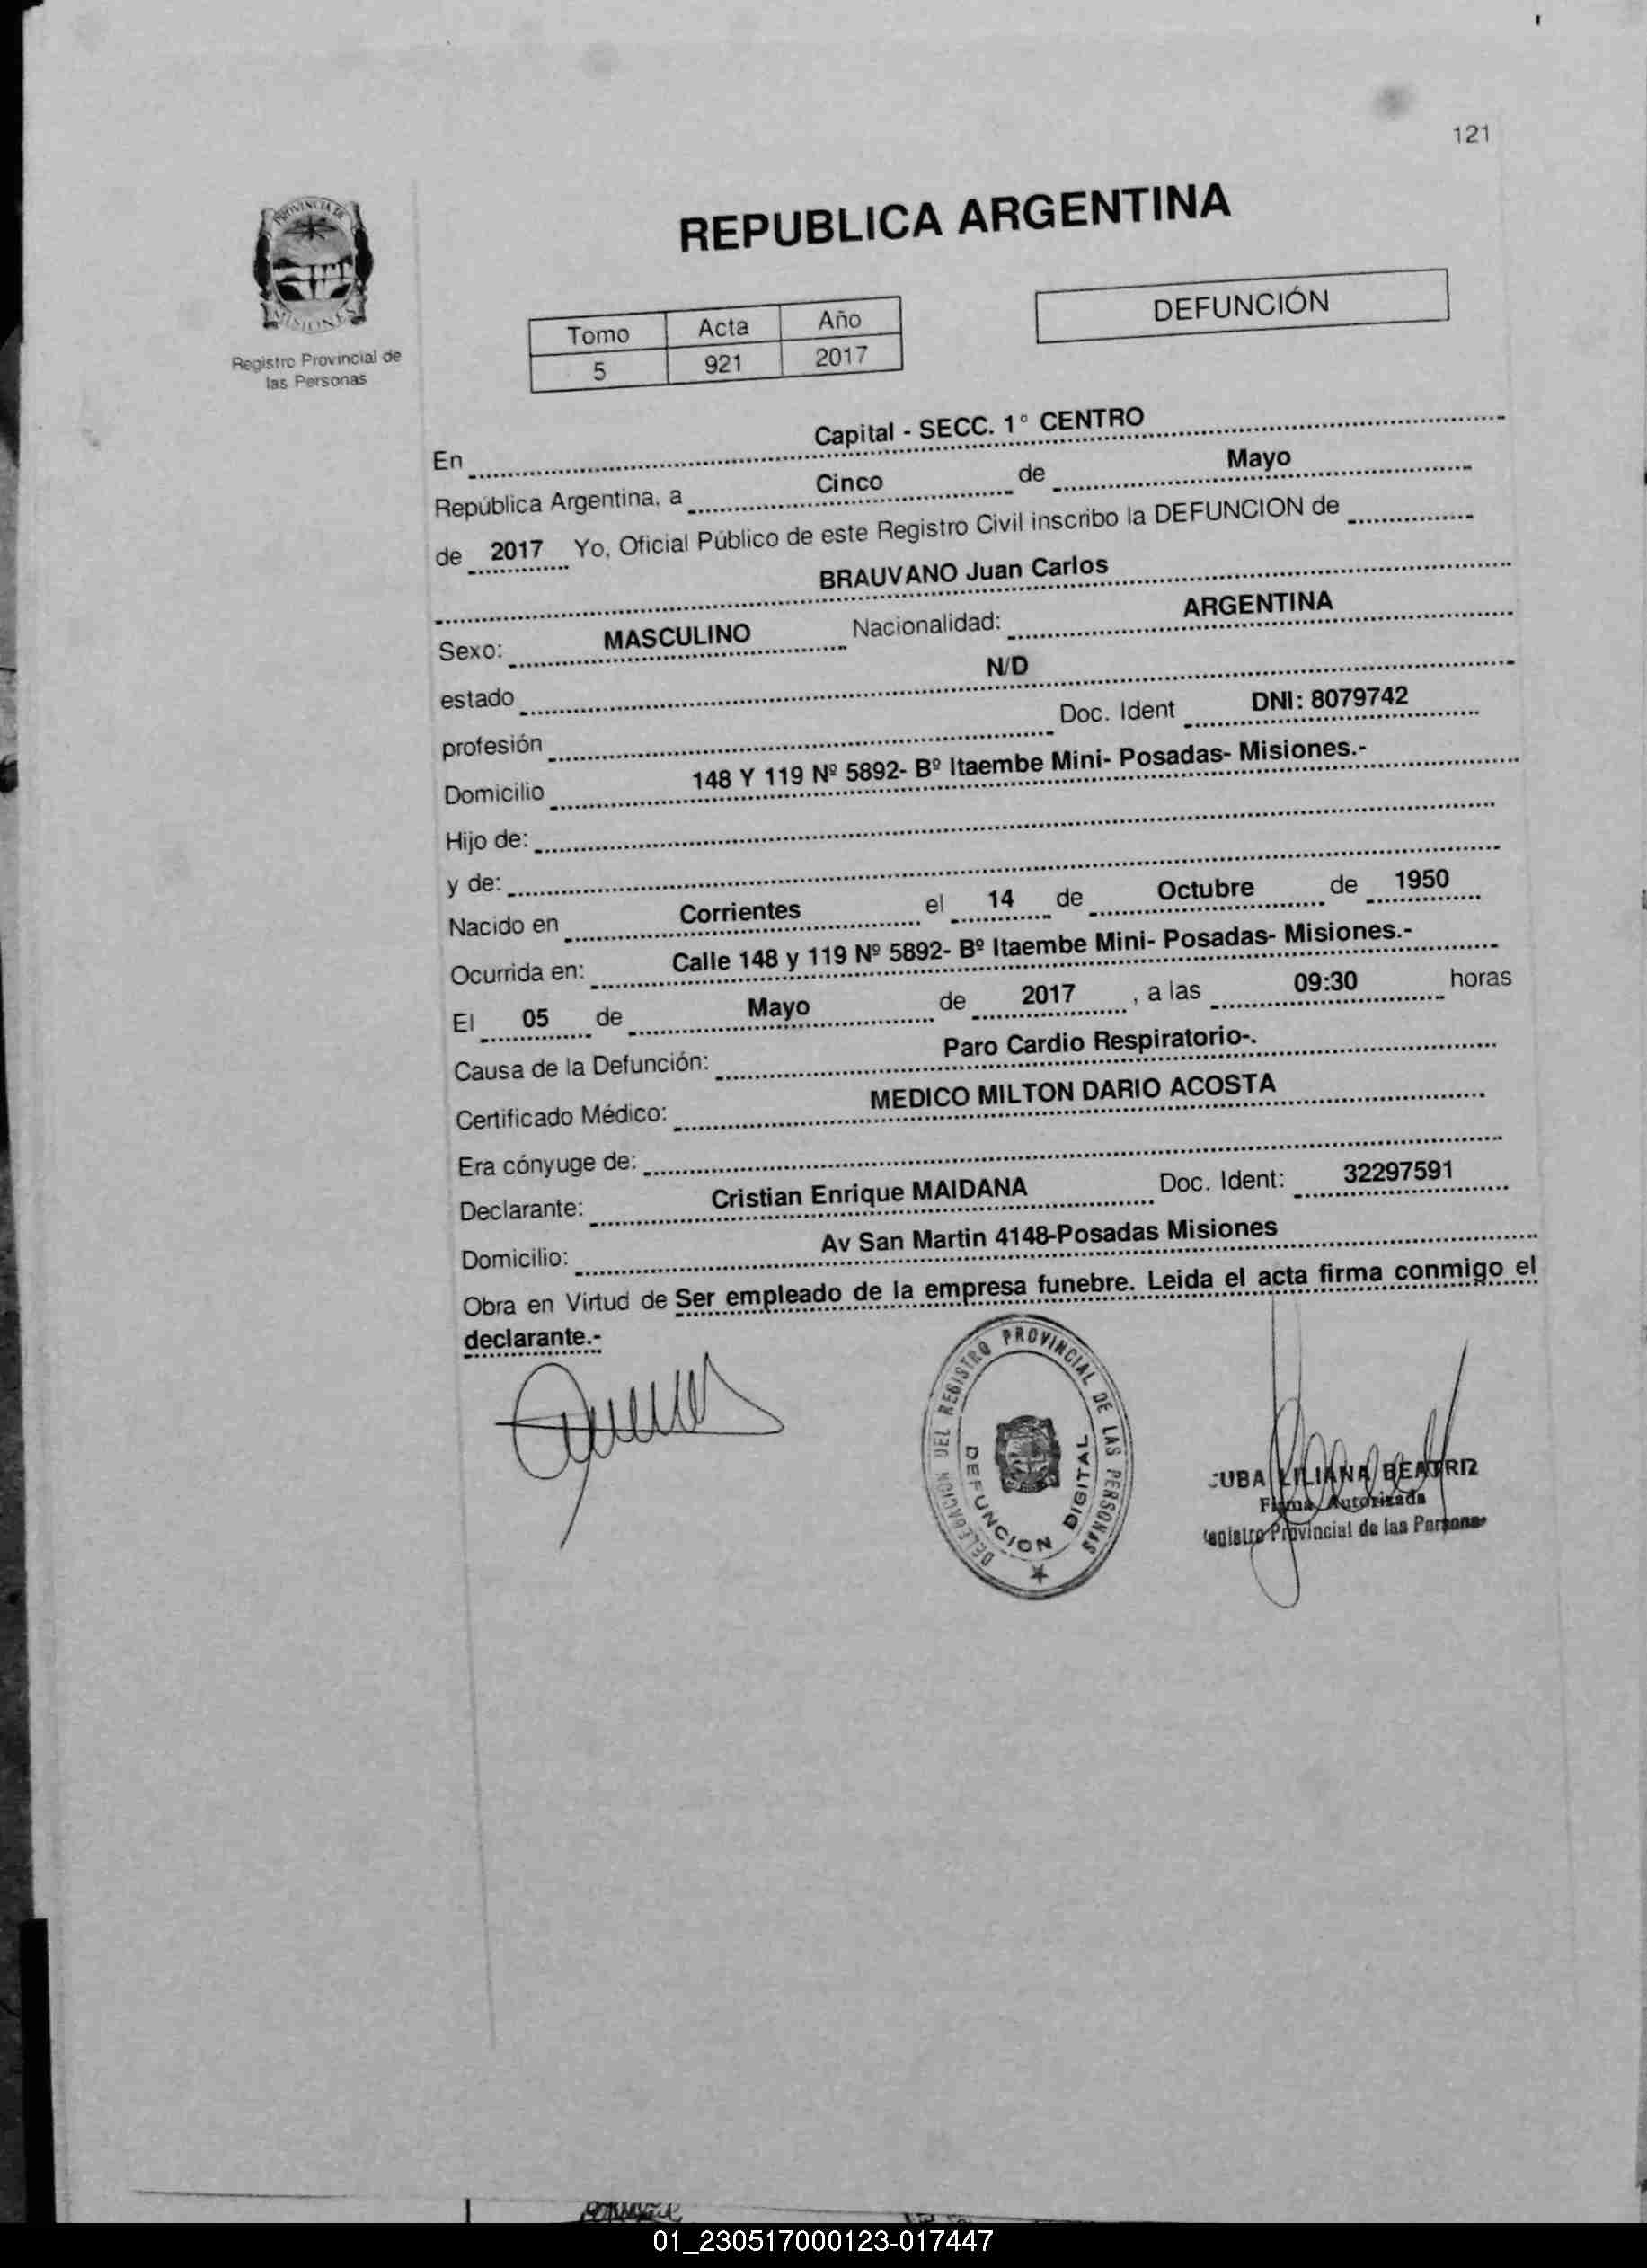 121
PROVINCIA DE
MISIONES
Registro Provincial de
las Personas
REPUBLICA ARGENTINA
Tomo Acta Año
5 921 2017
DEFUNCIÓN
En Capital - SECC. 1° CENTRO
República Argentina, a Cinco de Mayo
de 2017 Yo, Oficial Público de este Registro Civil inscribo la DEFUNCION de
BRAUVANO Juan Carlos
Sexo: MASCULINO Nacionalidad: ARGENTINA
estado N/D
profesión Doc. Ident DNI: 8079742
Domicilio 148 Y 119 Nº 5892- Bº Itaembe Mini- Posadas- Misiones.-
Hijo de:
y de:
Nacido en Corrientes el 14 de Octubre de 1950
Ocurrida en: Calle 148 y 119 Nº 5892- Bº Itaembe Mini- Posadas- Misiones.-
El 05 de Mayo de 2017 , a las 09:30 horas
Causa de la Defunción: Paro Cardio Respiratorio-.
Certificado Médico: MEDICO MILTON DARIO ACOSTA
Era cónyuge de:
Declarante: Cristian Enrique MAIDANA Doc. Ident: 32297591
Domicilio: Av San Martin 4148-Posadas Misiones
Obra en Virtud de Ser empleado de la empresa funebre. Leida el acta firma conmigo el
declarante.-
DELEGACION DEL REGISTRO PROVINCIAL DE LAS PERSONAS
DEFUNCION DIGITAL
LILIANA BEATRIZ
Firma Autorizada
Provincial de las Personas
01_230517000123-017447